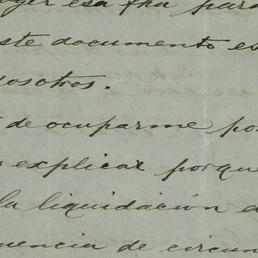 oger esa fha para
ste documento es
nosotros.
de ocuparme po
explicar porque
la liquidación d
uencia de circun